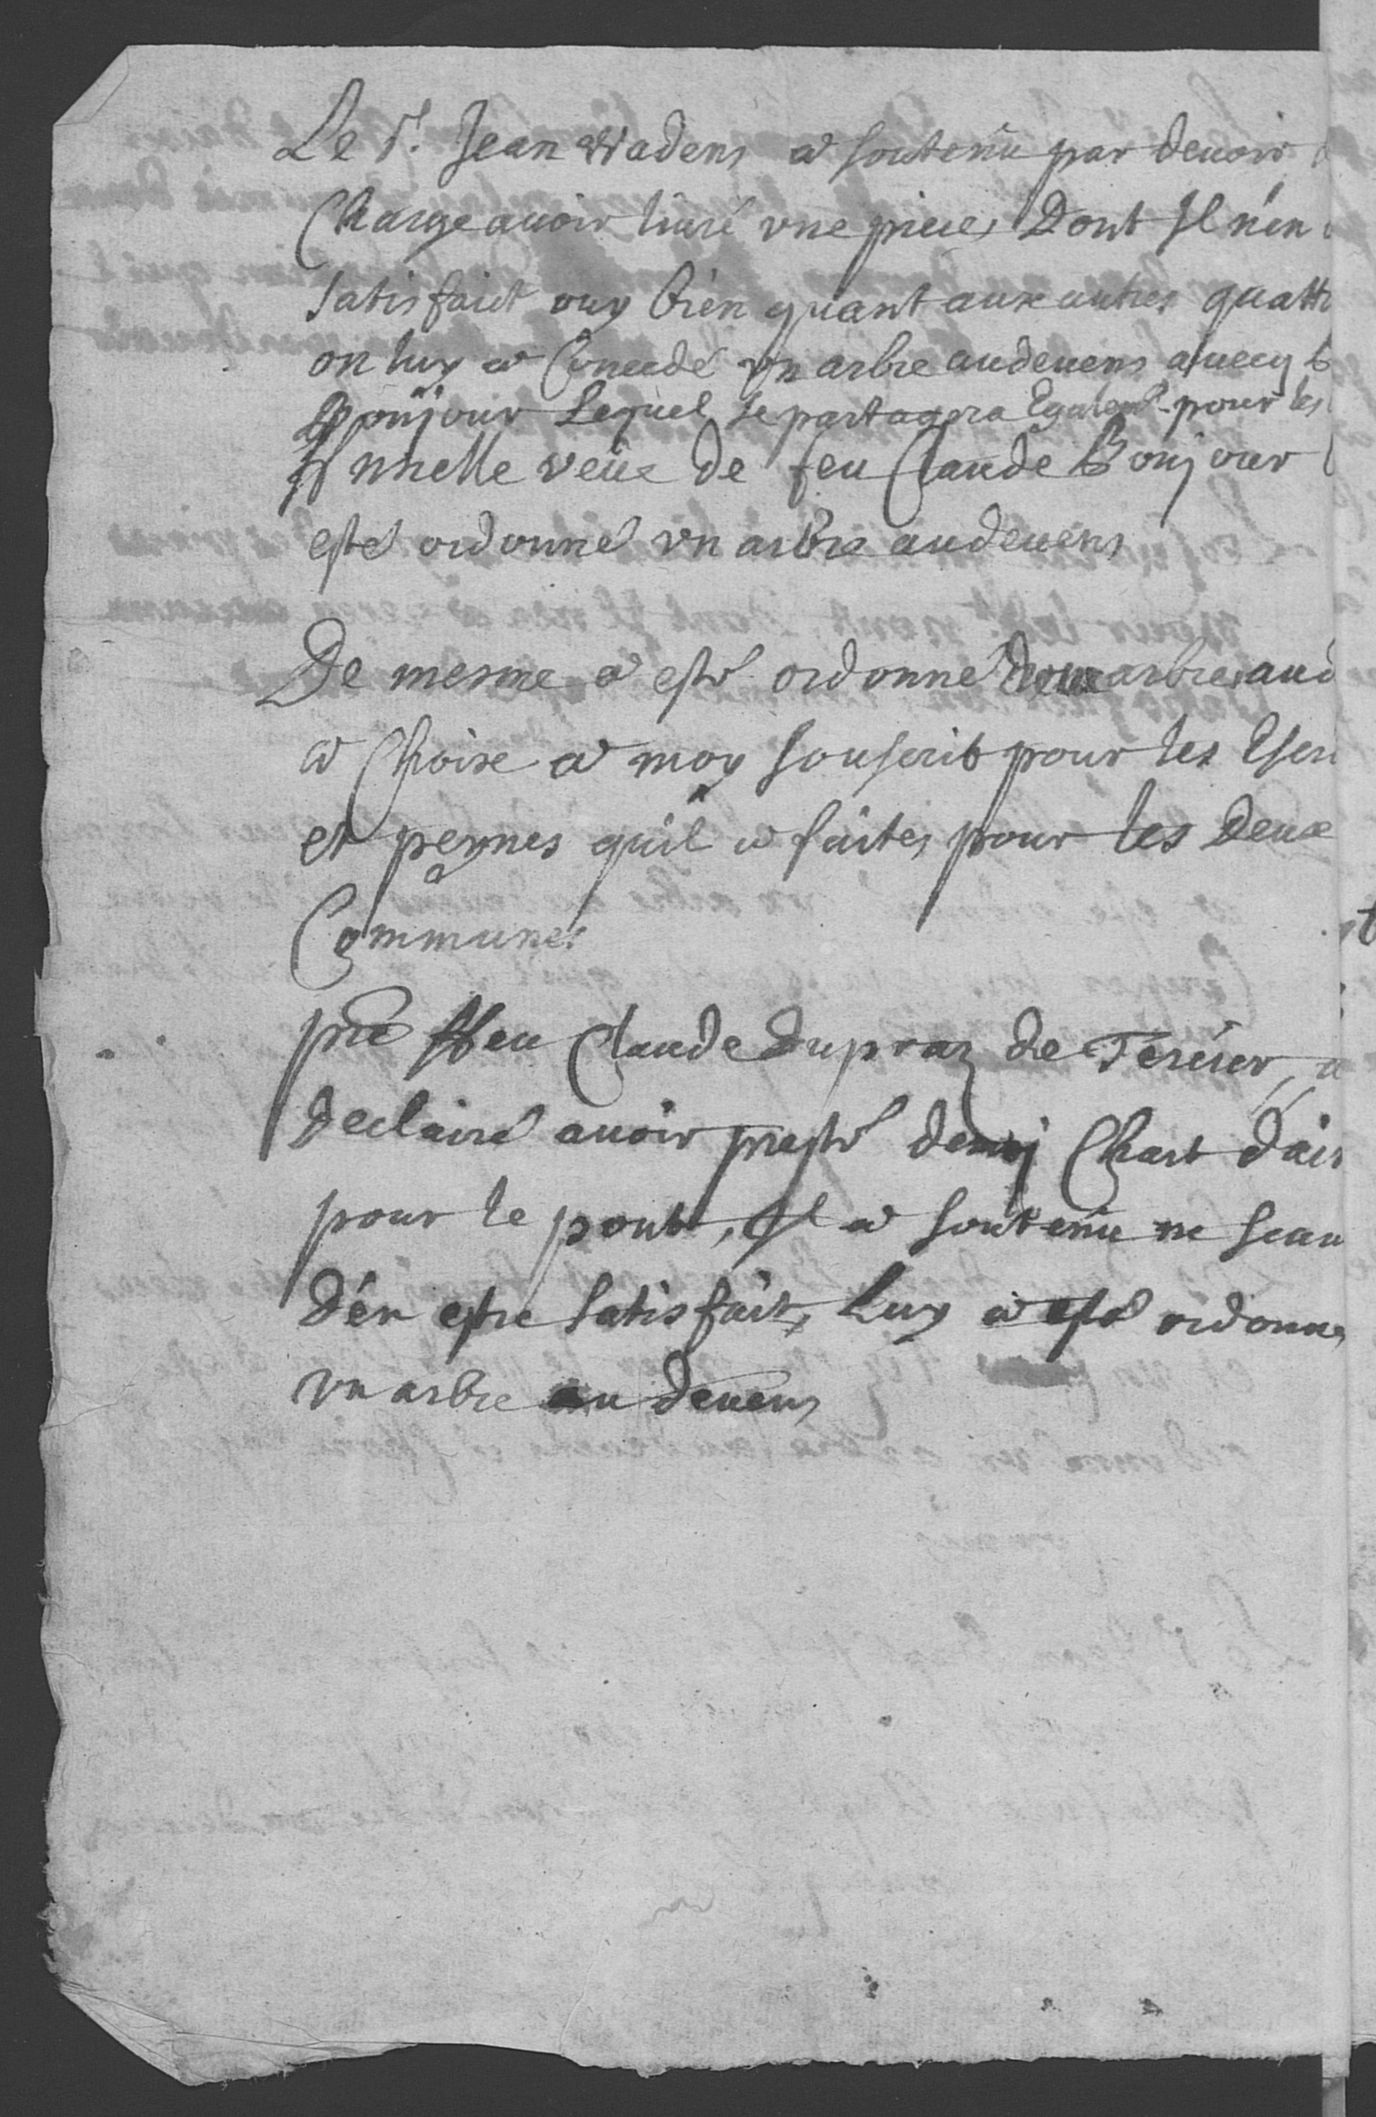 Le Sr. Jean Wadens a soutenu par devoir
Charge avoir livré vne piece, Dont Il n'en
satisfaict ouy bien quant aux autres quattr
on luy a Concedé vn arbre au devens avecq
Bonjour Lequel se partagera Egalemt. pour les
veue de feu Claude Bonjour
esté ordonné vn arbre au devens
De mesme a esté ordonné deux arbres au d
a Choise a moy souscrit pour les Escri
et peynes qu'il a faites pour les deux
Communes
pre ffeu Claude Dupraz de Tercier, a
declairé avoir presté demj Chart d'ais
pour le pont, Il a soutenu ne scau
d'en estre satisfait, Luy a esté ordonne
vn arbre au devens